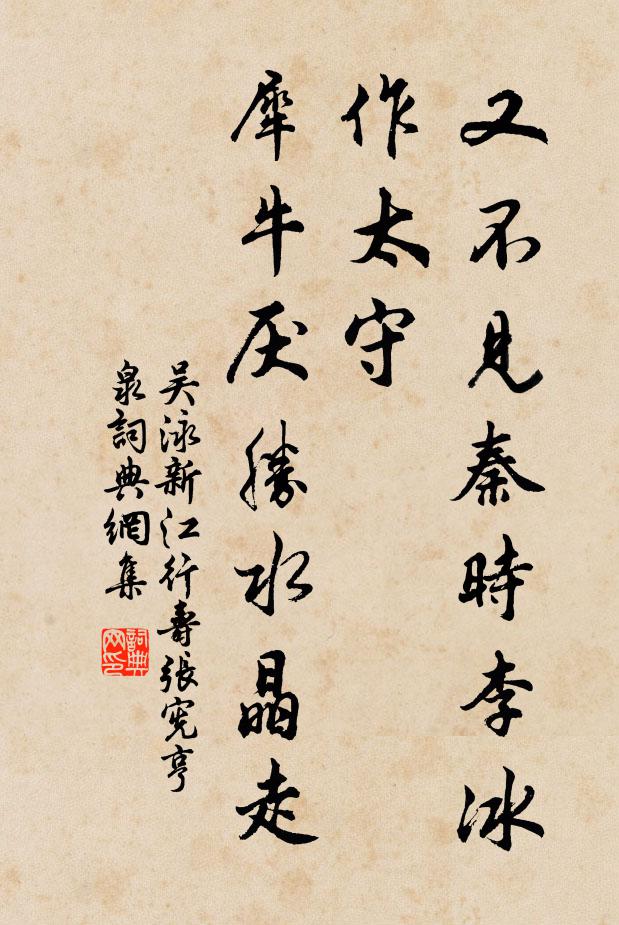 又不見秦時李冰
作太守
犀牛厌勝水晶走
吴泳新江行壽張宪亨
泉詞典網集
詞典
网印